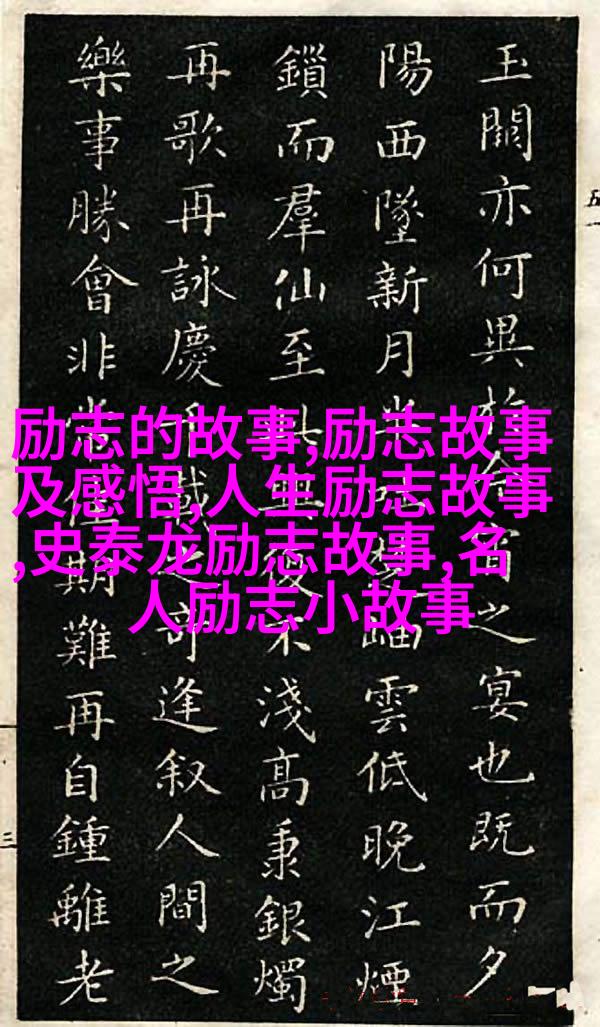 励志的故事,励志故事
及感悟,人生励志故事
,史泰龙励志故事,名
人励志小故事
玉闕亦何異之宴也既而夕
陽西墜新月雲低晚江煙
鎖而羣仙至不淺高秉銀燭
再歌再詠慶千載之奇逢叙人間之
樂事勝會非期難再自鍾離老
五一
三